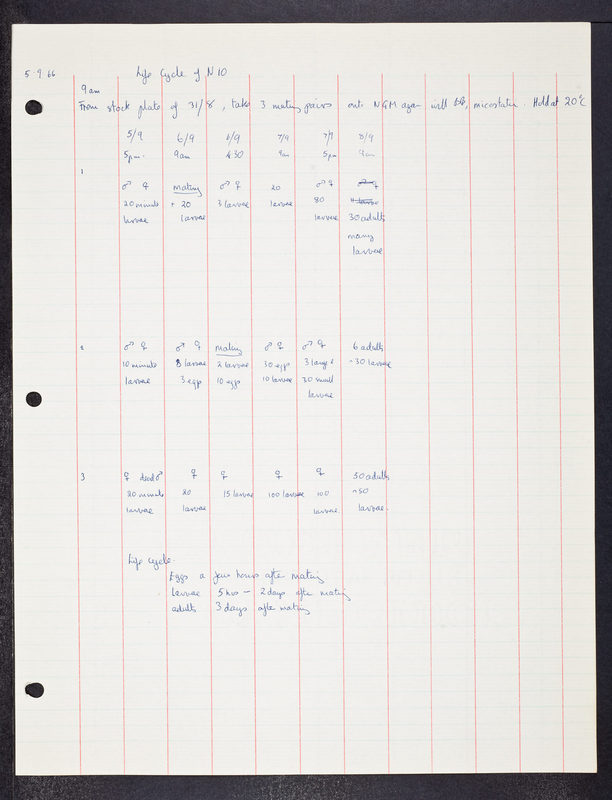 5 9 66 Life Cycle of N10
9am
From stock plate of 31/8, take 3 mating pairs onto NGM agar with, micostatin. Hold at 20°C
5/9 6/9 6/9 7/9 7/9 8/9
5pm. 9am 4.30 9am 5pm 9am
1
♂ ♀ mating ♂ ♀ 20 ♂ ♀ ♀
20 minute + 20 3 larvae larvae 80
larvae larvae larvae 30 adults
many
larvae
2 ♂ ♀ ♂ ♀ mating ♂ ♀ ♂ ♀ 6 adults
10 minute 8 larvae 2 larvae 30 eggs 3 large + ~30 larvae
larvae 3 eggs 10 eggs 10 larvae 30 small
larvae
3 ♀ dead ♂ ♀ ♀ ♀ ♀ 50 adults
20 minute 20 15 larvae 100 larvae 100 ~50
larvae larvae larvae. larvae.
Life cycle.
Eggs a few hours after mating
larvae 5 hrs - 2 days after mating
adults 3 days after mating